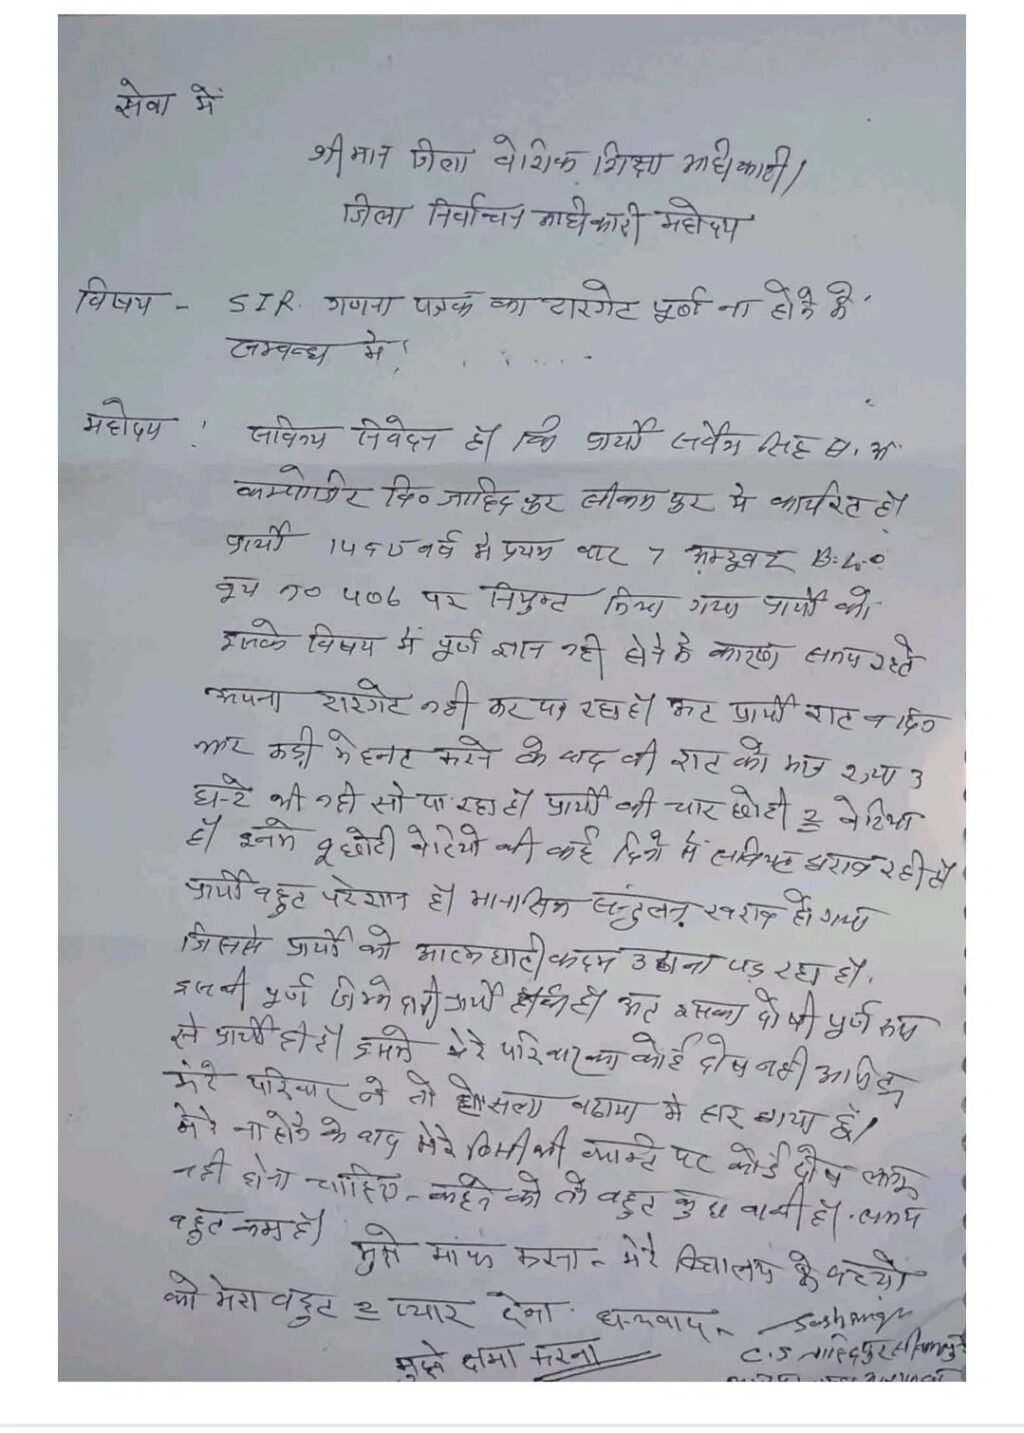 सेवा में
श्रीमान जिला बेशिक शिक्षा अधिकारी/
जिला निर्वाचन अधिकारी महोदय
विषय - SIR. गणना पत्रक का टारगेट पूर्ण ना होने के
सम्बन्ध में!
महोदय ! सविनय निवेदन है। कि प्रार्थी सर्वेश सिंह स. अ.
कम्पोजीट वि० जाहिदपुर सीकमपुर में कार्यरत है।
प्रार्थी वर्ष में प्रथम बार 7 अक्टूबर B.L.O
बूथ न० 406 पर नियुक्त किया गया प्रार्थी को
इसके विषय में पूर्ण ज्ञान नही होने के कारण समय रहते
अपना टारगेट नही कर पा रहा है। अतः प्रार्थी रात व दिन
कड़ी मेहनत करने के बाद भी रात को मात्र 2 या 3
घन्टे भी नही सो पा रहा है। प्रार्थी की चार छोटी 2 बेटिया
है। इनमे 2 छोटी बेटियो की कई दिनो से तबियत खराब रही है।
प्रार्थी बहुत परेशान है। मानसिक सन्तुलन खराब हो गया
जिससे प्रार्थी को आत्मघाती कदम उठाना पड़ रहा है।
इसकी पूर्ण जिम्मेदारी प्रार्थी की है। अतः इसका दोषी पूर्ण रूप
से प्रार्थी ही है। इसमे मेरे परिवार का कोई दोष नही अपितु
मेरे परिवार ने तो होसला बढाया मे हार गया हूँ।
मेरे ना होने के बाद मेरे किसी भी पर कोई दोष
नही होना चाहिए - कहने को तो बहुत कुछ बाकी है। समय
बहुत कम है।
मुझे माफ करना - मेरे विद्यालय के बच्चो
को मेरा बहुत 2 प्यार देना धन्यवाद
C.S जाहिदपुर सीकमपुर
मुझे क्षमा करना